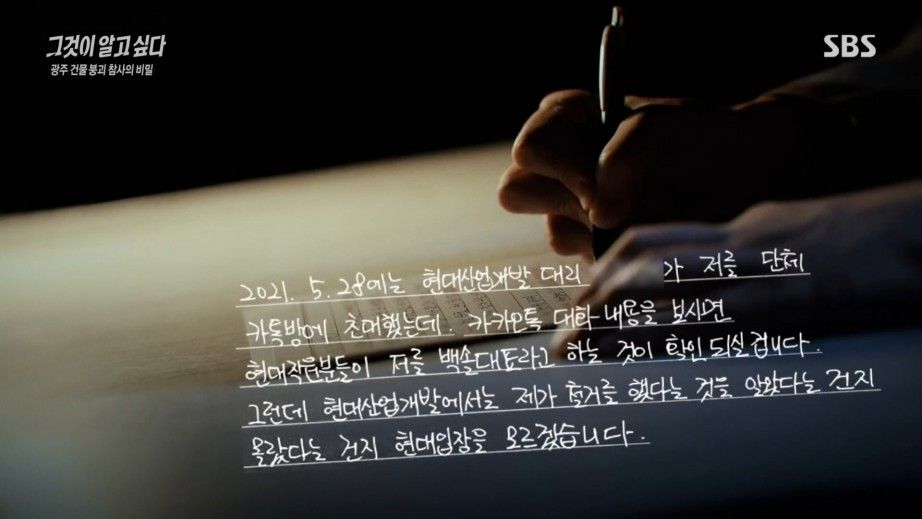 그것이 알고싶다
광주 건물 붕괴 참사의 비밀
SBS
2021. 5. 28에는 현대산업개발 대리 가 저를 단체
카톡방에 초대했는데. 카카오톡 대화 내용을 보시면
현대직원분들이 저를 백솔대표라고 하는 것이 확인되실 겁니다.
그런데 현대산업개발에서는 제가 철거를 했다는 것을 알았다는 건지
몰랐다는 건지 현대입장을 모르겠습니다.